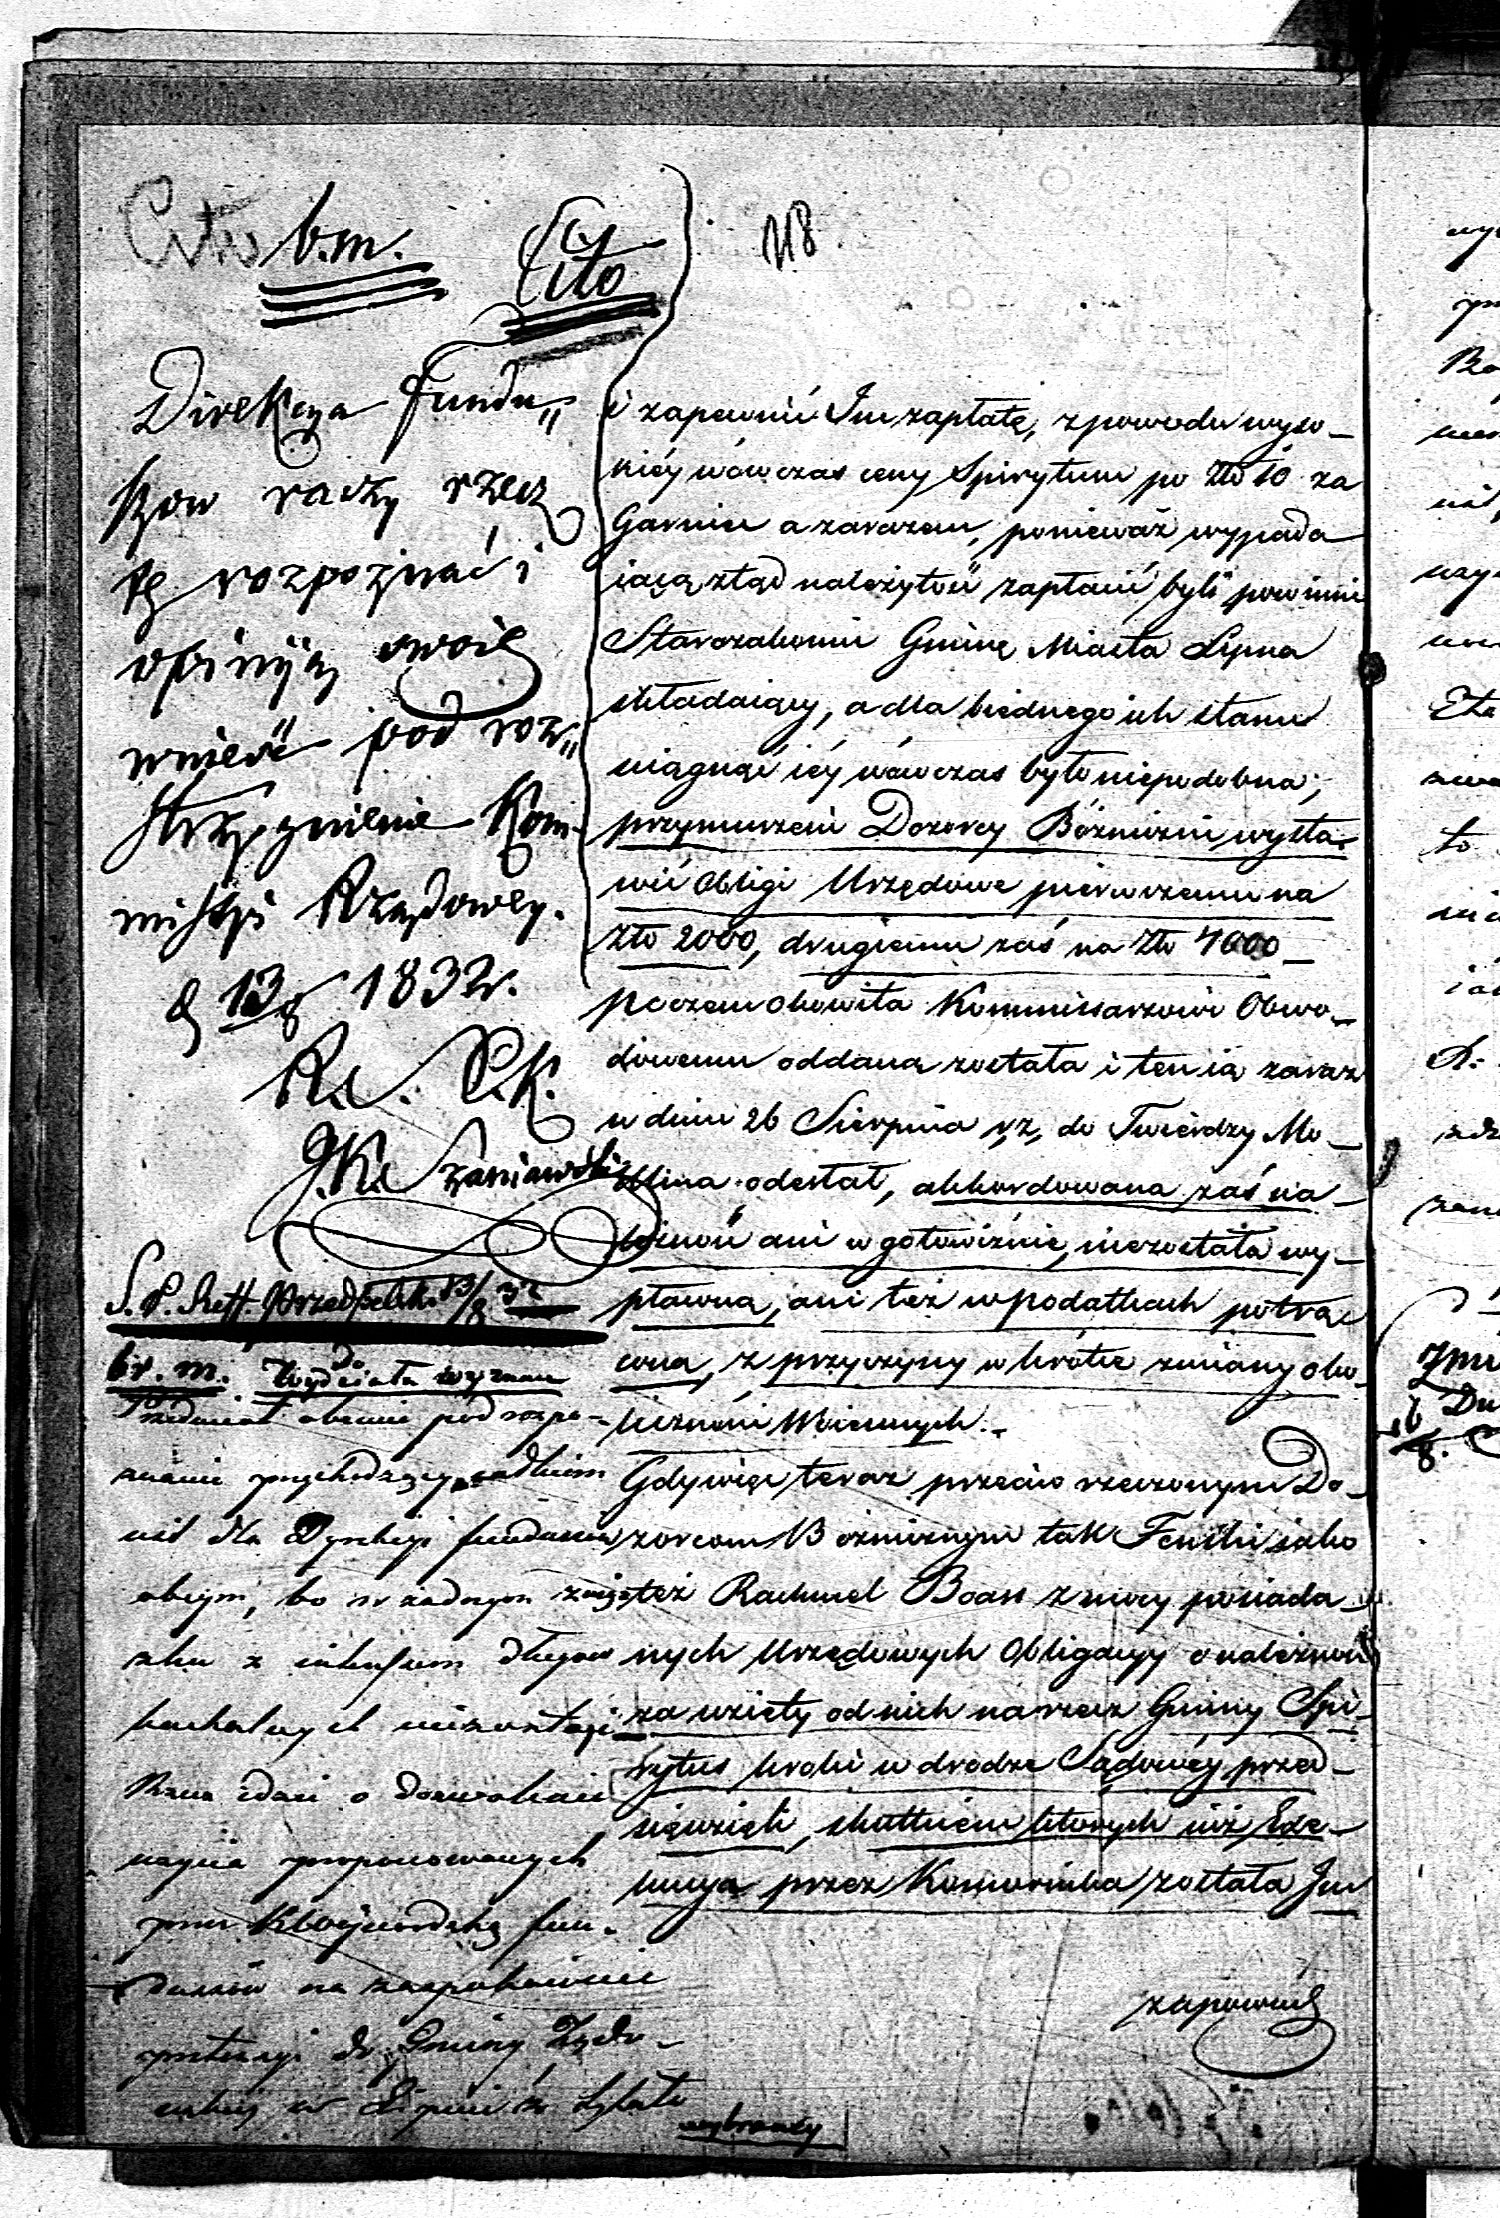 Cito b.m. Cito
118
Direkcya Fundu„
szow raczy rzecz
tę rozpoznać i
opiniją swoię
wnieść pod roz„
strzygnienie Kom„
missyi Rządowey.
d 13/8 1832 r.
R.S. P.K.
J.K. Szaniawski
S. P. Reff. Przedpełsk. 13/8 32
br. m. do Wydziału wyznań
Przedmiot obecnie pod rozpo-
znanie przychodzący
nie dla Dyrekcyi funduszów
obcym, bo w żadnym związ
zku z długów
kahalnych
Rzecz idzie o
proponowanych
przez K Wojewódzką fun-
duszów na zaspokojenie
pretensyi do Gminy Żydo-
wskiej w Lipnie za
wybrany
i zapewnić Im zapłatę, z powodu wyso-
kiéy wówczas ceny Spirytusu po Złt 10 za
Garniec a zarazem, ponieważ wypada
iącą ztąd należytość zapłacić byli powinni
Starozakonni Gminę Miasta Lipna
składaiący, a dla biednego ich stanu
ściągnąć iéy wówczas było niepodobna,
przymuszeni Dozorcy Bóżniczni wysta-
wić Obligi Urzędowe pierwszemu na
Złt 2000, drugiemu zaś na Złt 4000
poczem okowita Kommissarzowi Obwo-
dowemu oddana została i ten ią zaraz
w dniu 26 Sierpnia r.z. do Twierdzy Mo-
dlina odesłał, akkordowana zaś na-
leżność ani w gotowiźnie, niezostała wy-
płacona, ani też w podatkach potrą-
cona, z przyczyny w krótce zmiany oko-
liczności Woiennych.-
Gdy więc teraz przeciw rzeczonym Do-
zorcom Bóżnicznym tak Fenthi iako
też Rachmel Boass z mocy posiada-
nych Urzędowych Obligacyy o należność
za wzięty od nich na rzecz Gminy Spi-
rytus kroki w drodze Sądowéy przed-
sięwzięli, skutkiem których iuż Exe-
kucya przez Komornika została Im
zapowiedz